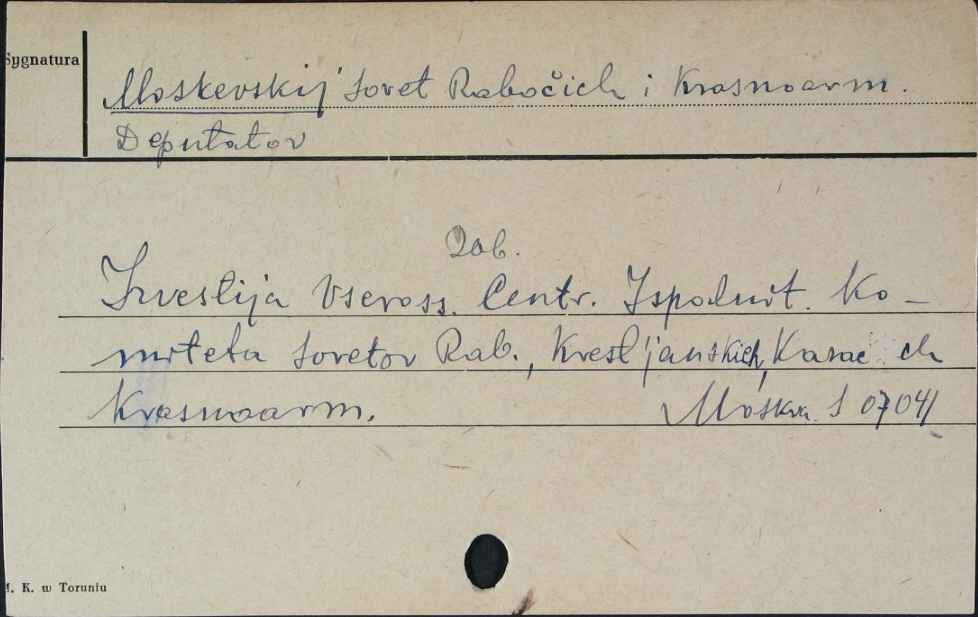 Sygnatura
Moskevskij Sovet Rabočich i Krasnoarm.
Deputatov
Zob.
Izvestija Vseross. Centr. Ispolnit. Ko-
miteta Sovetov Rab., Krest'janskich, Kazac ch
Krasnoarm. Moskva. S 07041
M. K. w Toruniu